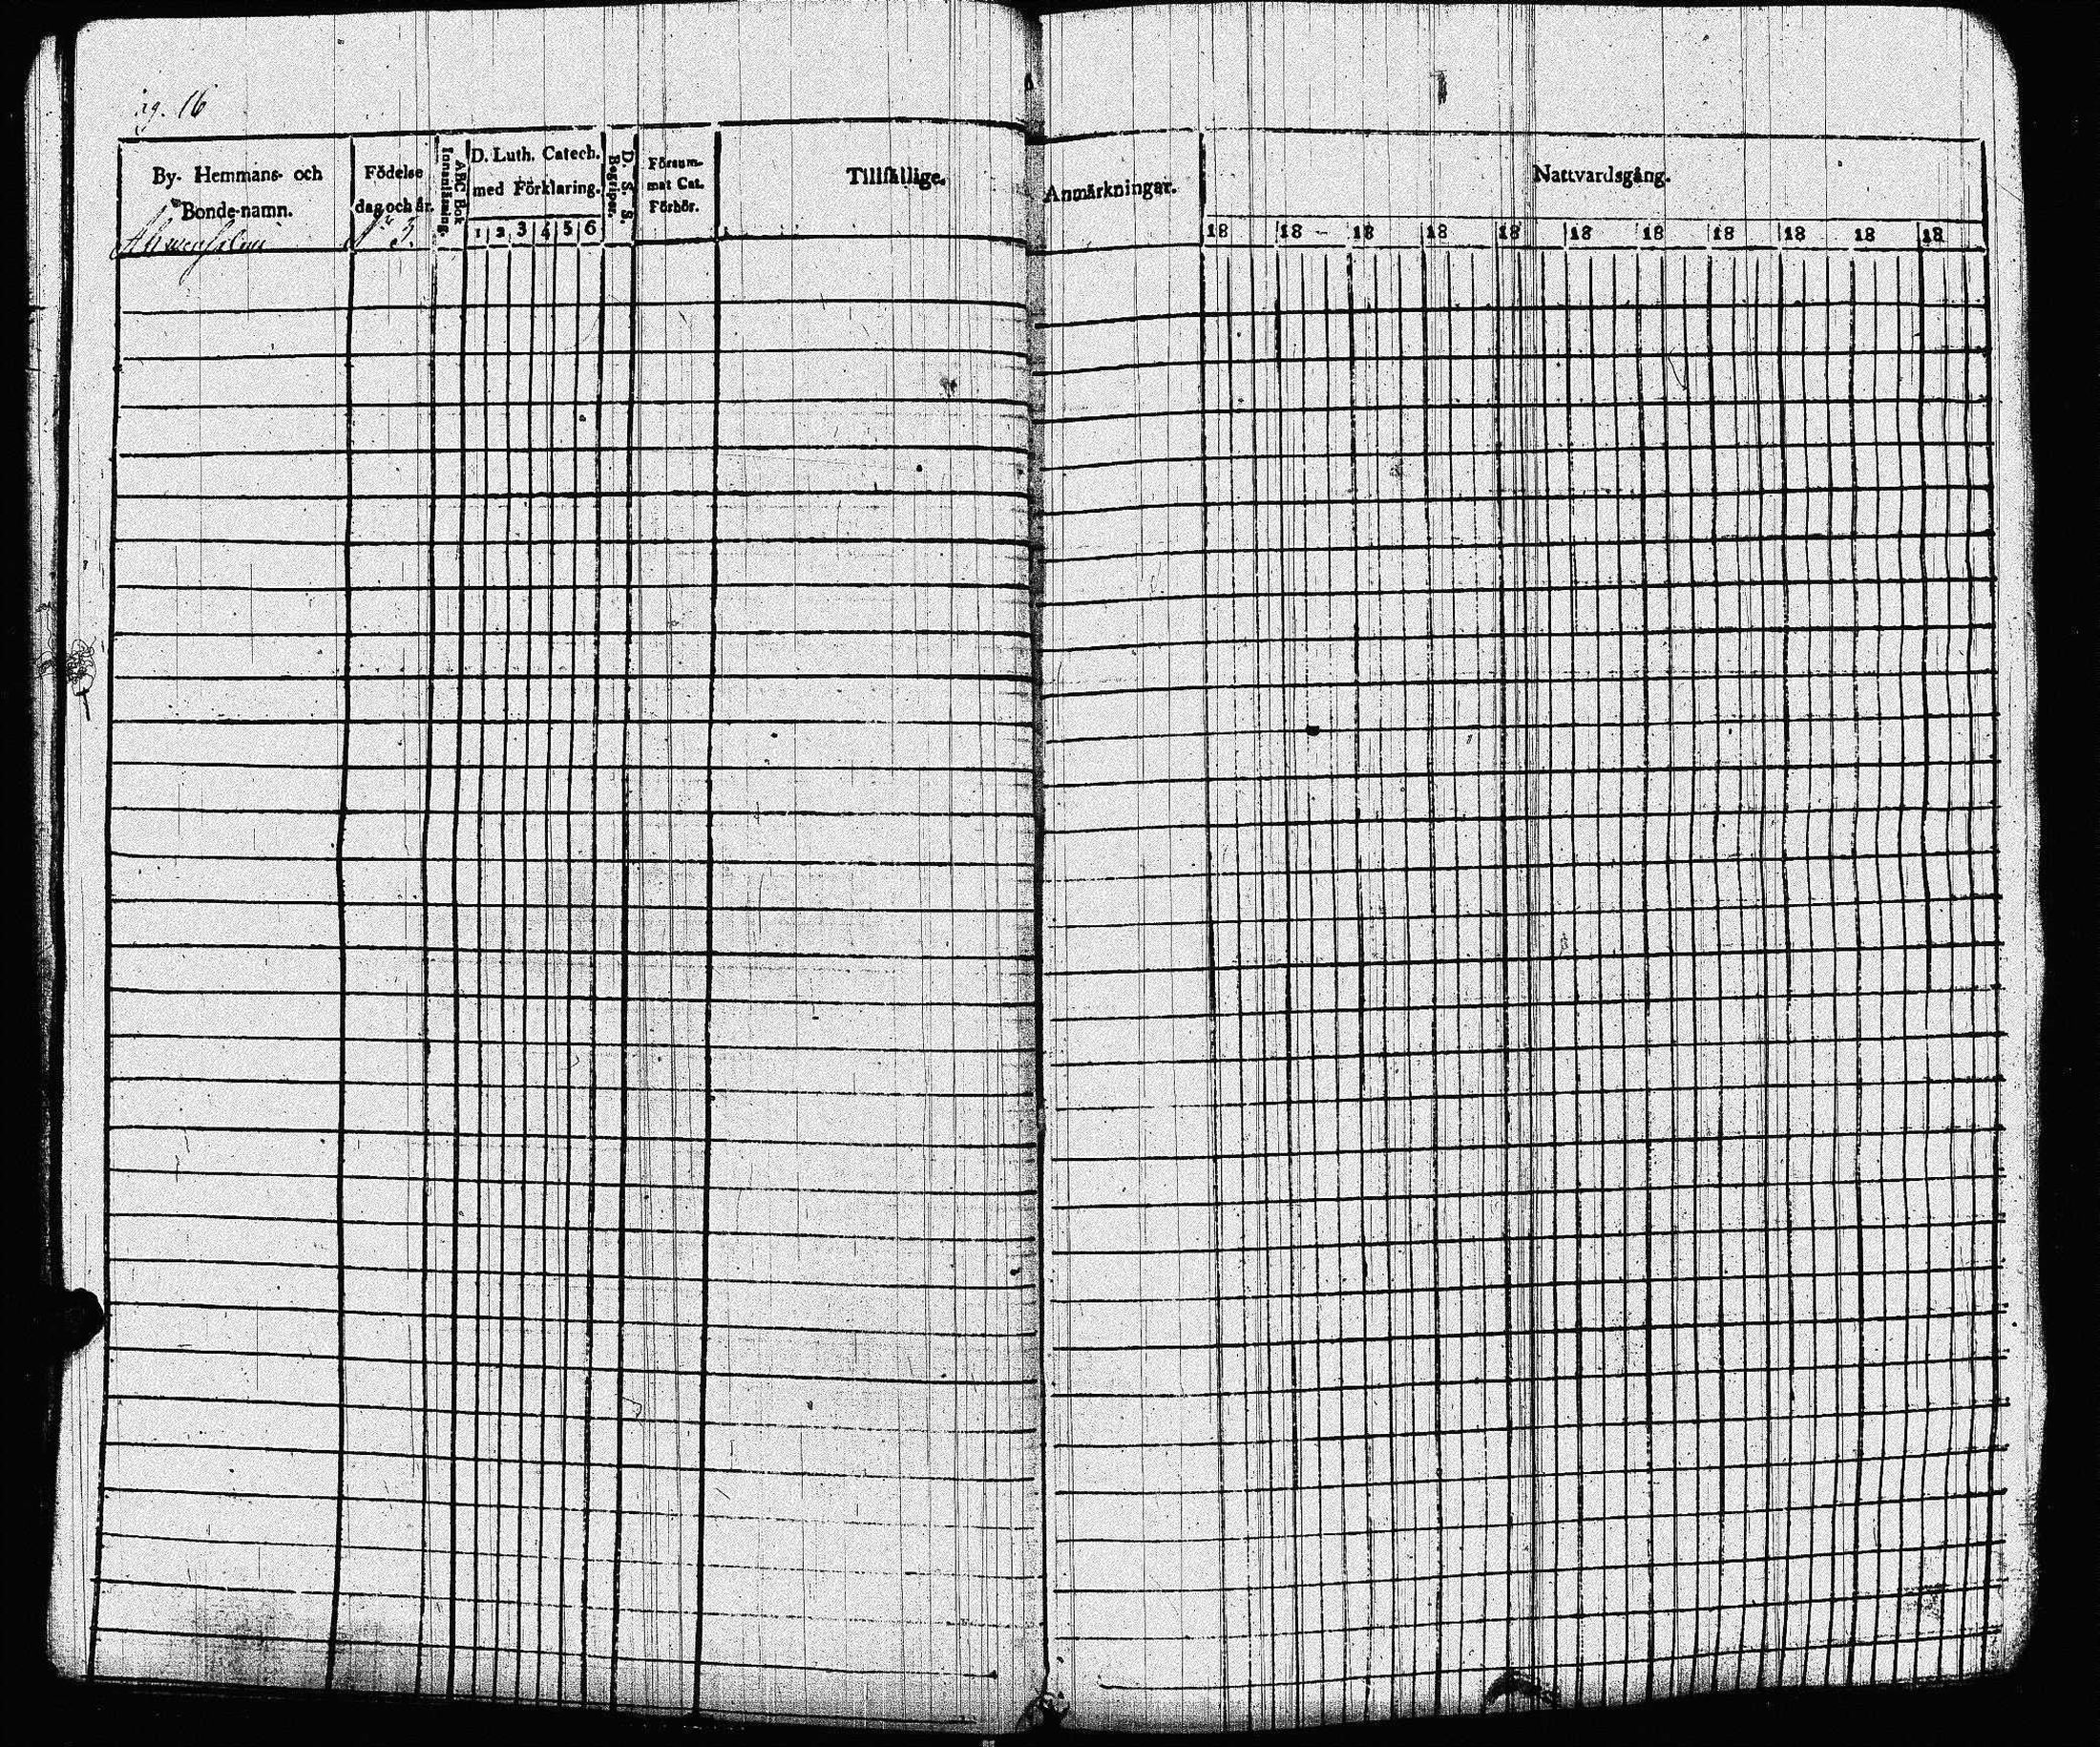 pag. 16
By- Hemmans- och
Bonde-namn.
Födelse
dag och år.
ABC Bok
Innanläsning.
D. Luth. Catech.
med Förklaring.
1 2 3 4 5 6
D. S. S.
Begriper.
Försum-
mat Cat.
Förhör.
Tillfällige
Anmärkningar.
Nattvardsgång.
18 18 18 18 18 18 18 18 18 18 18
N:o 3.